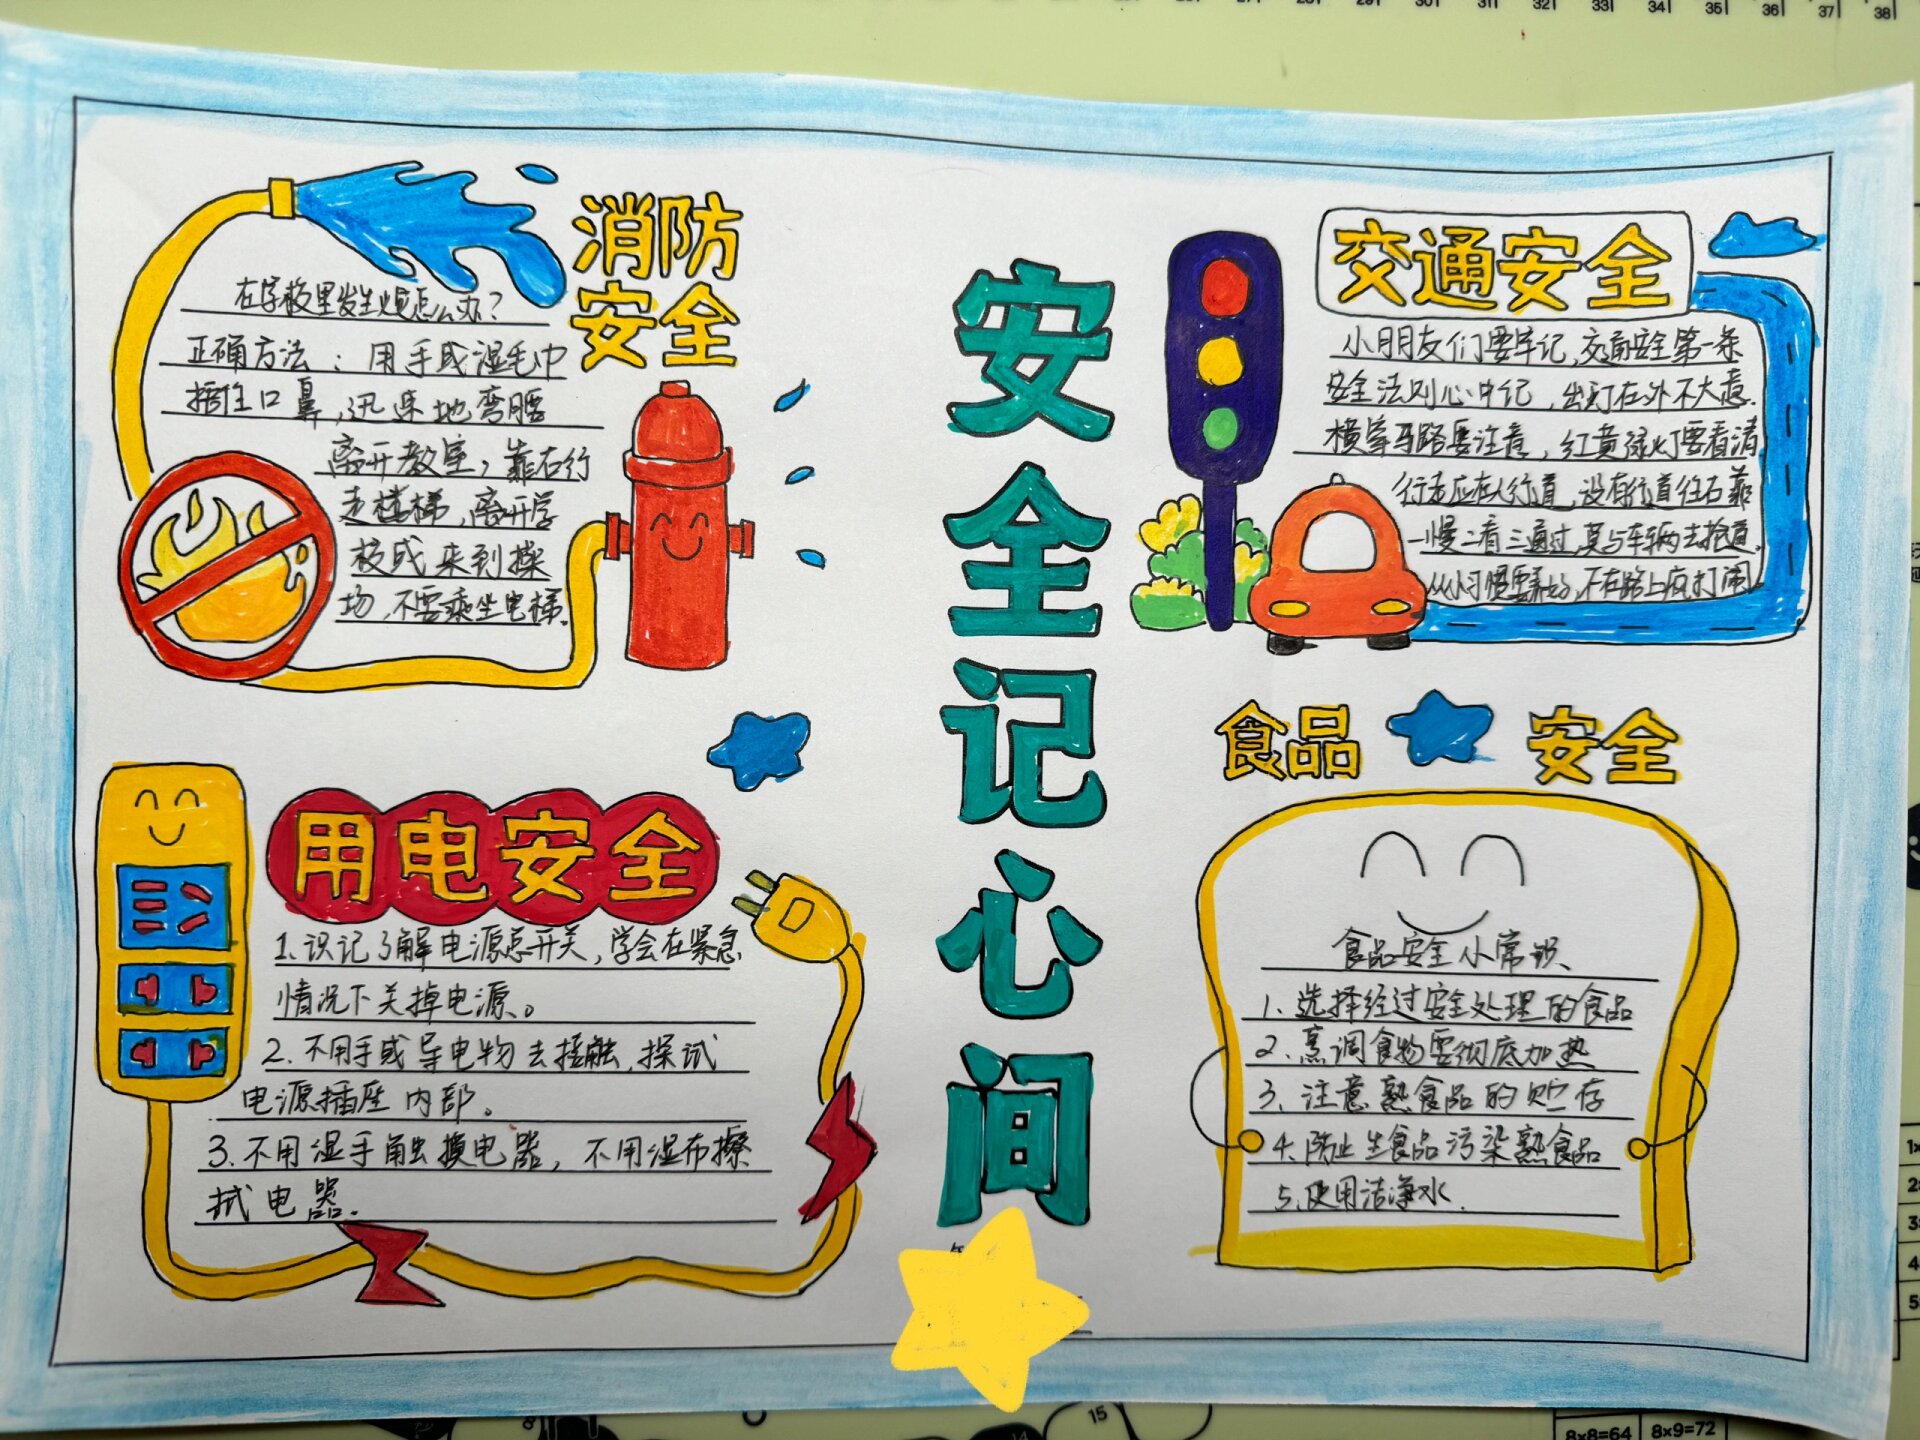 消防
安全
在学校里发生火灾怎么办？
正确方法：用手或湿毛巾
捂住口鼻，迅速地弯腰
离开教室，靠右行
走楼梯，离开学
校或来到操
场，不要乘坐电梯。
安全记心间
交通安全
小朋友们要牢记，交通安全第一条
安全法则心中记，出行在外不大意.
横穿马路要注意，红黄绿灯要看清
行走应在人行道，没有行道往右靠
一慢二看三通过，莫与车辆去抢道.
从小习惯要养好，不在路上疯打闹.
用电安全
1.识记了解电源总开关，学会在紧急
情况下关掉电源。
2.不用手或导电物去接触,探试
电源插座内部。
3.不用湿手触摸电器，不用湿布擦
拭电器.
食品 安全
食品安全小常识
1.选择经过安全处理的食品
2.烹调食物要彻底加热
3.注意熟食品的贮存
4.防止生食品污染熟食品
5.使用洁净水.
30 31 32 33 34 35 36 37 38
15
8x8=64 8x9=72